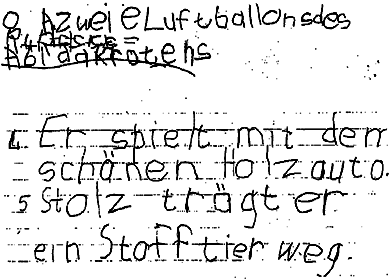 zwei Luftballons des
4 Er spielt mit dem
schönen Holzauto.
5 Stolz trägt er
ein Stofftier weg.